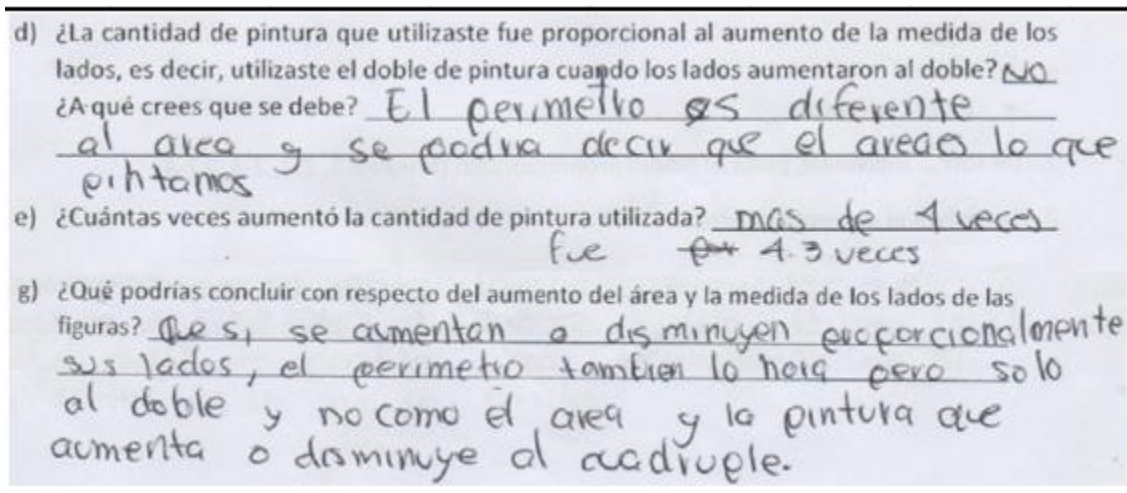 d) ¿La cantidad de pintura que utilizaste fue proporcional al aumento de la medida de los
lados, es decir, utilizaste el doble de pintura cuando los lados aumentaron al doble? NO
¿A qué crees que se debe? El perimetro es diferente
al area y se podria decir que el area es lo que
pintamos
e) ¿Cuántas veces aumentó la cantidad de pintura utilizada? mas de 4 veces
fue 4.3 veces
g) ¿Qué podrías concluir con respecto del aumento del área y la medida de los lados de las
figuras? Que si se aumentan o disminuyen proporcionalmente
sus lados, el perimetro tambien lo hara pero solo
al doble y no como el area y la pintura que
aumenta o disminuye al cuadruple.